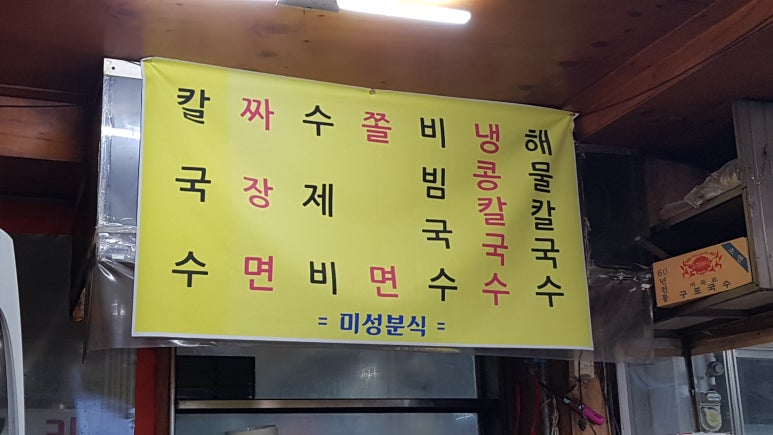 칼국수
짜장면
수제비
쫄면
비빔국수
냉콩칼국수
해물칼국수
= 미성분식 =
60년전통
구포국수